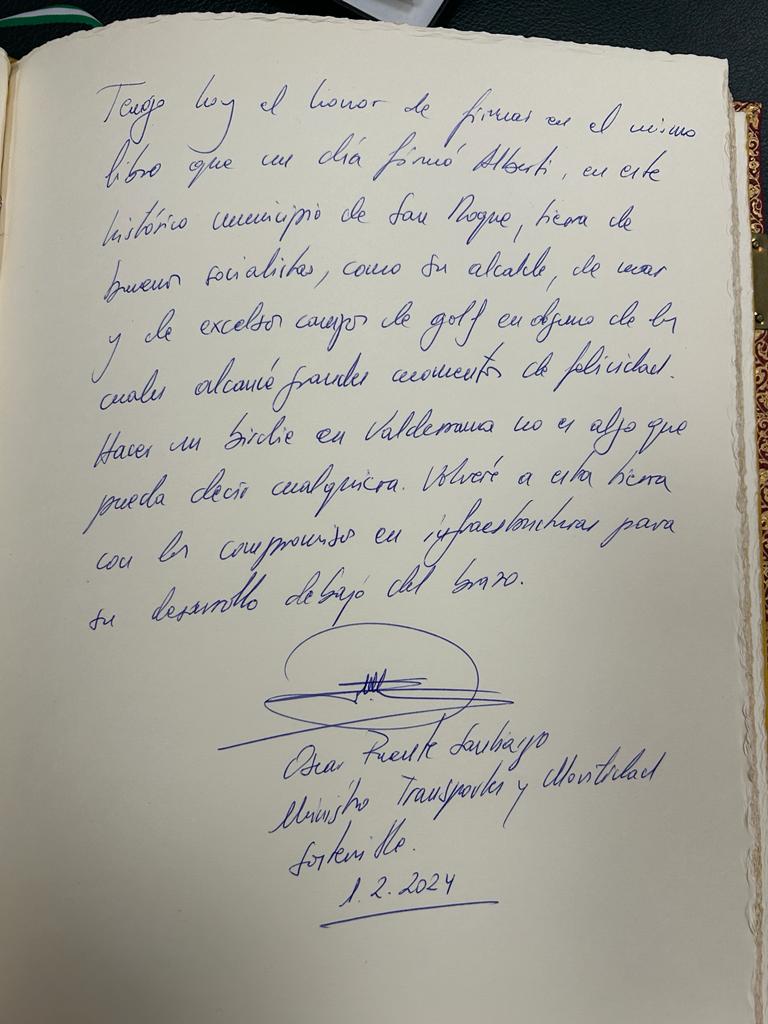 Tengo hoy el honor de firmar en el mismo
libro que un día firmó Alberti, en este
histórico municipio de San Roque, tierra de
buenos socialistas, como su alcalde, de mar
y de excelsos campos de golf en alguno de los
cuales alcancé grandes momentos de felicidad.
Hacer un birdie en Valderrama no es algo que
pueda decir cualquiera. Volveré a esta tierra
con los compromisos en infraestructuras para
su desarrollo debajo del brazo.
Oscar Puente Santiago
Ministro Transportes y Movilidad
Sostenible.
1.2.2024